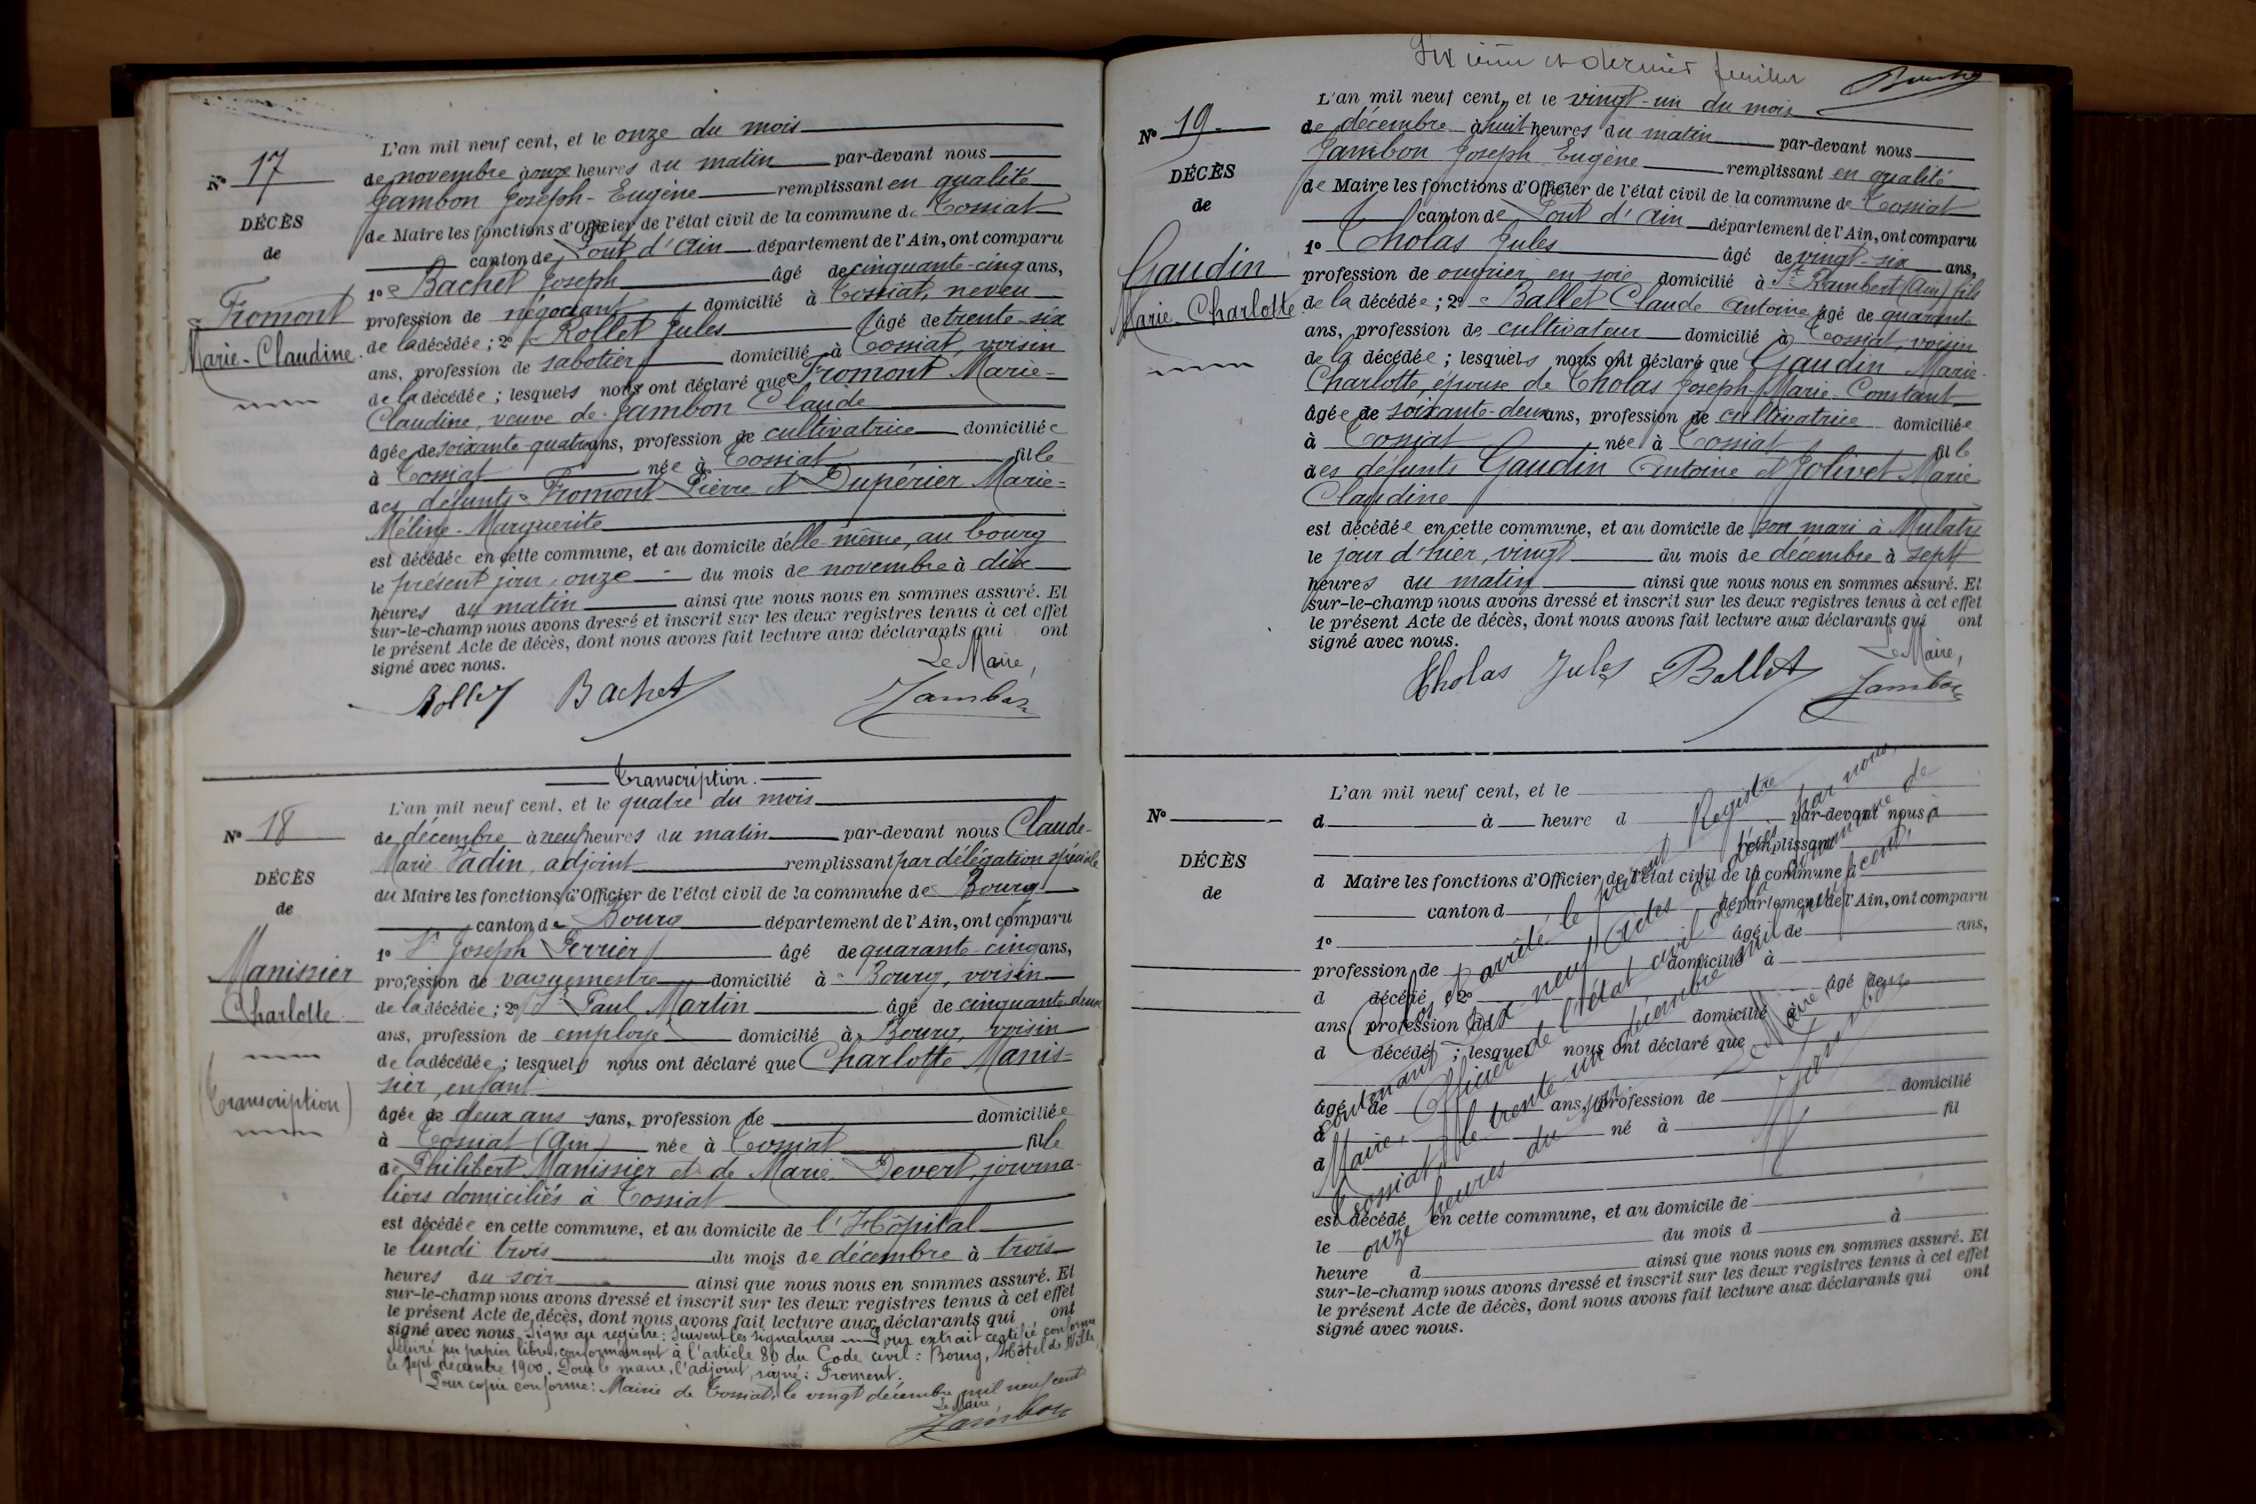 L'an mil neuf cent, et le onze du mois
N° 17
de novembre à onze heures du matin par-devant nous
Jambon Joseph-Eugène remplissant en qualité
DÉCÈS
de Maire les fonctions d'Officier de l'état civil de la commune de Tossiat
de
canton de Pont d'Ain département de l'Ain, ont comparu
1° Bachet Joseph âgé de cinquante-cinq ans,
Fromont
profession de négociant domicilié à Tossiat, neveu
Marie-Claudine
de la décédée ; 2° Rollet Jules âgé de trente-six
ans, profession de sabotier domicilié à Tossiat, voisin
de la décédée ; lesquels nous ont déclaré que Fromont Marie-
Claudine, veuve de Jambon Claude
âgée de soixante-quatre ans, profession de cultivatrice domiciliée
à Tossiat née à Tossiat fille
des défunts Fromont Pierre et Dupérier Marie-
Méline-Marguerite
est décédée en cette commune, et au domicile d'elle-même, au bourg
le présent jour, onze du mois de novembre à dix
heures du matin ainsi que nous nous en sommes assuré. Et
sur-le-champ nous avons dressé et inscrit sur les deux registres tenus à cet effet
le présent Acte de décès, dont nous avons fait lecture aux déclarants qui ont
signé avec nous.
Le Maire,
Rollet Bachet Jambon
Transcription.
L'an mil neuf cent, et le quatre du mois
N° 18
de décembre à neuf heures du matin par-devant nous Claude-
Marie Vadin, adjoint remplissant par délégation spéciale
DÉCÈS
du Maire les fonctions d'Officier de l'état civil de la commune de Bourg
de
canton de Bourg département de l'Ain, ont comparu
1° Sr Joseph Perrier âgé de quarante-cinq ans,
Manissier
profession de vaguemestre domicilié à Bourg, voisin
Charlotte
de la décédée ; 2° Sr Paul Martin âgé de cinquante-deux
ans, profession de employé domicilié à Bourg, voisin
de la décédée ; lesquels nous ont déclaré que Charlotte Manis-
sier, enfant
(Transcription)
âgée de deux ans sans, profession de domiciliée
à Tossiat (Ain) née à Tossiat fille
de Philibert Manissier et de Marie Devert, journa-
liers domiciliés à Tossiat
est décédée en cette commune, et au domicile de l'Hôpital
le lundi trois du mois de décembre à trois
heures du soir ainsi que nous nous en sommes assuré. Et
sur-le-champ nous avons dressé et inscrit sur les deux registres tenus à cet effet
le présent Acte de décès, dont nous avons fait lecture aux déclarants qui ont
signé avec nous. Signé au registre: Suivent les signatures Pour extrait certifié conforme
délivré sur papier libre, conformément à l'article 80 du Code civil: Bourg, Hôtel de Ville,
le sept décembre 1900. Pour le maire, l'adjoint, signé: Froment.
Pour copie conforme: Mairie de Tossiat, le vingt décembre mil neuf cent
Le Maire,
Jambon
Sixième et dernier feuillet
L'an mil neuf cent, et le vingt-un du mois
N° 19
de décembre à huit heures du matin par-devant nous
Jambon Joseph Eugène remplissant en qualité
DÉCÈS
de Maire les fonctions d'Officier de l'état civil de la commune de Tossiat
de
canton de Pont d'Ain département de l'Ain, ont comparu
1° Tholas Jules âgé de vingt-six ans,
Gaudin
profession de ouvrier en soie domicilié à St Rambert (Ain) fils
Marie-Charlotte
de la décédée ; 2° Ballet Claude Antoine âgé de quarante
ans, profession de cultivateur domicilié à Tossiat, voisin
de la décédée ; lesquels nous ont déclaré que Gaudin Marie-
Charlotte, épouse de Tholas Joseph-Marie-Constant
âgée de soixante-deux ans, profession de cultivatrice domiciliée
à Tossiat née à Tossiat fille
des défunts Gaudin Antoine et Jolivet Marie
Claudine
est décédée en cette commune, et au domicile de son mari à Mulaty
le jour d'hier, vingt du mois de décembre à sept
heures du matin ainsi que nous nous en sommes assuré. Et
sur-le-champ nous avons dressé et inscrit sur les deux registres tenus à cet effet
le présent Acte de décès, dont nous avons fait lecture aux déclarants qui ont
signé avec nous.
Le Maire,
Tholas Jules Ballet Jambon
L'an mil neuf cent, et le
N°
d à heure d par-devant nous
remplissant
DÉCÈS
d Maire les fonctions d'Officier de l'état civil de la commune d
de
canton d département de l'Ain, ont comparu
1° âgé de ans,
profession de domicilié à
d décédé ; 2° âgé de
ans, profession de domicilié à
d décédé ; lesquels nous ont déclaré que
âgé de ans, profession de domicilié
à né à fil
d
est décédé en cette commune, et au domicile de
le du mois d à
heure d ainsi que nous nous en sommes assuré. Et
sur-le-champ nous avons dressé et inscrit sur les deux registres tenus à cet effet
le présent Acte de décès, dont nous avons fait lecture aux déclarants qui ont
signé avec nous.
Clos et arrêté le présent Registre
contenant dix-neuf Actes de décès par nous,
Maire, Officier de l'état civil de la commune de
Tossiat, le trente-un décembre mil neuf cent, à
onze heures du soir.
Le Maire,
Jambon